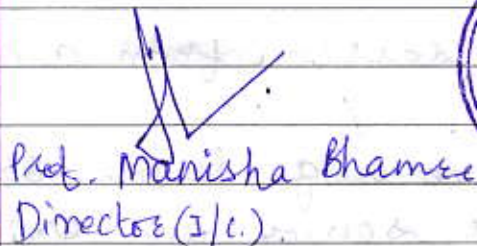 Prof. Manisha Bhamre
Director (I/C.)